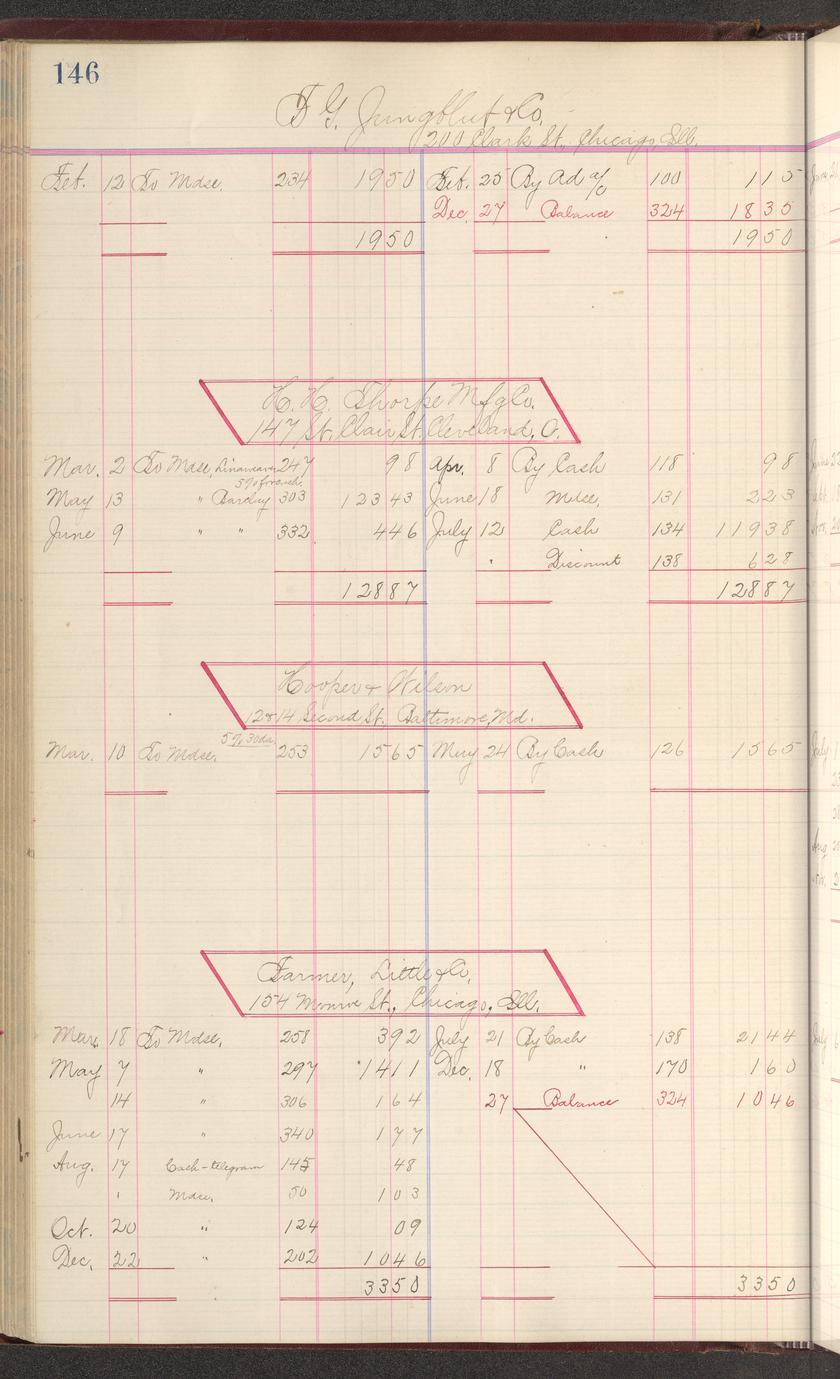 146
F G. Jungblut & Co.
200 Clark St., Chicago, Ill.
Feb. 12 To Mdse. 234 1950 Feb. 25 By Ad a/c 100 115
Dec. 27 Balance 324 1835
1950 1950
H. H. Thorpe Mfg Co.
147 St. Clair St. Cleveland, O.
Mar. 2 To Mdse, Linaweaver 247 98 Apr. 8 By Cash 118 98
5% for cash.
May 13 " Barclay 303 12343 June 18 Mdse, 131 223
June 9 " " 332 446 July 12 Cash 134 11938
" Discount 138 628
12887 12887
Hooper & Wilson
12 & 14 Second St., Baltimore, Md.
5% 30 da.
Mar. 10 To Mdse. 253 1565 May 24 By Cash 126 1565
Farmer, Little & Co.
154 Monroe St., Chicago, Ill.
Mar. 18 To Mdse. 258 392 July 21 By Cash 138 2144
May 7 " 297 1411 Dec. 18 " 170 160
14 " 306 164 27 Balance 324 1046
June 17 " 340 177
Aug. 17 Cash-telegram 145 48
" Mdse. 50 103
Oct. 20 " 124 09
Dec. 22 " 202 1046
3350 3350